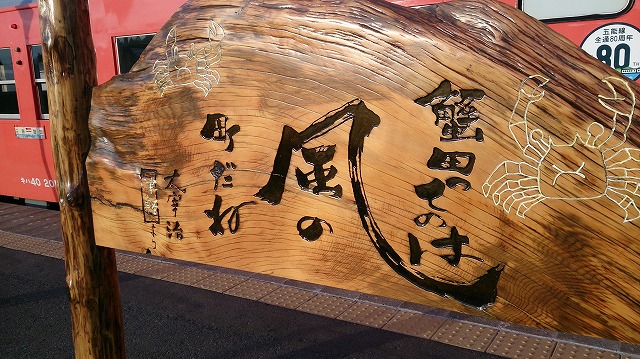 蟹田ってのは
風の
町だね
太宰治
「津軽」より
五能線
全通80周年
80
TH
キハ40 20